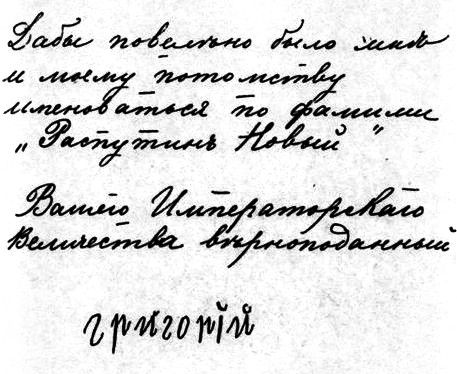 Дабы повелѣно было мнѣ
и моему потомству
именоваться по фамиліи
„Распутинъ Новый”
Вашего Императорскаго
Величества вѣрноподанный
григорій